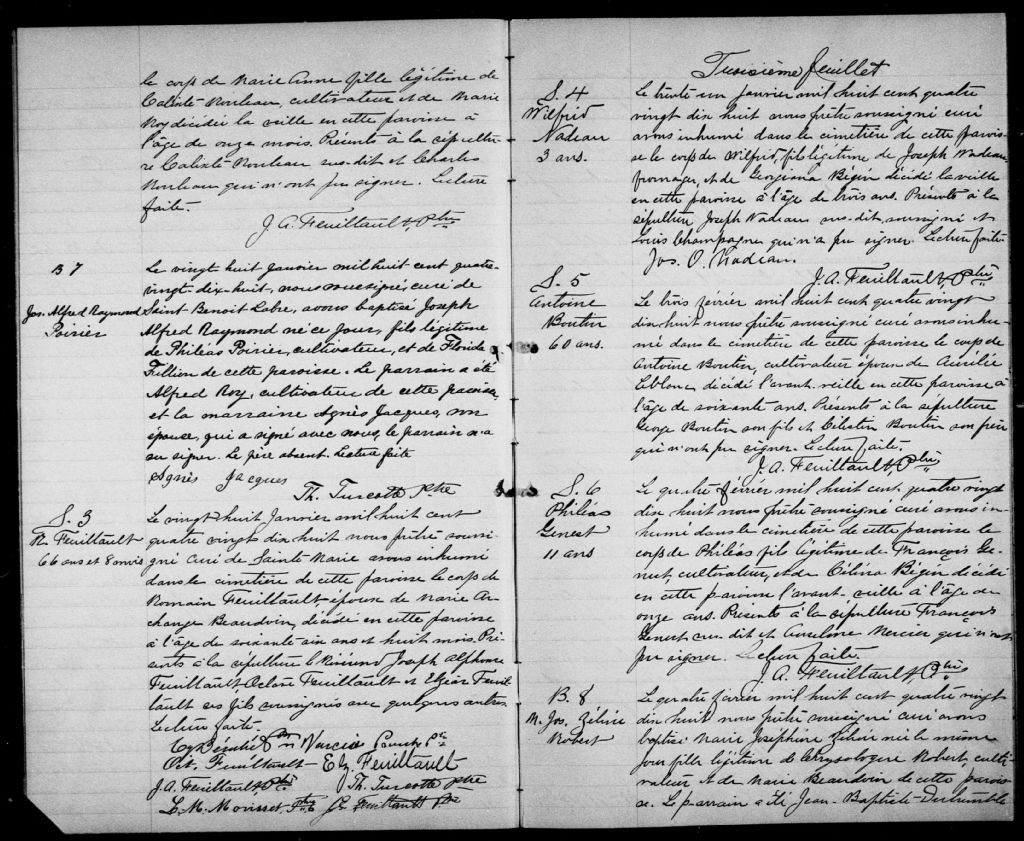 le corps de Marie Anne fille légitime de
Calixte Rouleau, cultivateur et de Marie
Roy décédée la veille en cette paroisse à
l'âge de onze mois. Présents à la sépultu-
re Calixte Rouleau sus-dit et Charles
Rouleau qui n'ont pu signer. Lecture
faite.
J. A. Feuiltault, Ptre
B 7
Jos. Alfred Raymond
Poirier
Le vingt huit Janvier mil huit cent quatre-
vingt-dix-huit, nous soussigné, curé de
Saint-Benoit Labre, avons baptisé Joseph
Alfred Raymond né ce jour, fils légitime
de Philéas Poirier, cultivateur, et de Floride
Fillion de cette paroisse. Le parrain a été
Alfred Roy, cultivateur de cette paroisse,
et la marraine Agnès Jacques, son
épouse, qui a signé avec nous, le parrain n'a
su signer. Le père absent. Lecture faite
Agnès Jacques
Th. Turcotte Ptre
S. 3
R. Feuiltault
66 ans et 8 mois
Le vingt huit Janvier mil huit cent
quatre vingt dix huit nous prêtre soussi-
gné curé de Sainte Marie avons inhumé
dans le cimetière de cette paroisse le corps de
Romain Feuiltault, époux de Marie Ar-
change Beaudoin, décédé en cette paroisse
à l'âge de soixante-six ans et huit mois. Pré-
sents à la sépulture le Révérend Joseph Alphonse
Feuiltault, Octave Feuiltault et Elzéar Feuil-
tault ses fils soussignés avec quelques autres.
Lecture faite.
Narcisse
Oct. Feuiltault - Elz. Feuiltault
J. A. Feuiltault Ptre Th. Turcotte Ptre
L. M. Morisset Ptre Feuiltault Ptre
Troisième feuillet
S. 4
Wilfrid
Nadeau
3 ans.
Le trente un Janvier mil huit cent quatre
vingt dix huit nous prêtre soussigné curé
avons inhumé dans le cimetière de cette parois-
se le corps de Wilfrid, fils légitime de Joseph Nadeau,
fromager, et de Georgiana Bégin décédé la veille
en cette paroisse à l'âge de trois ans. Présents à la
sépulture Joseph Nadeau sus-dit, soussigné et
Louis Champagne qui n'a pu signer. Lecture faite.
Jos. O. Nadeau.
J. A. Feuiltault, Ptre
S. 5
Antoine
Boutin
60 ans.
Le trois février mil huit cent quatre vingt
dix huit nous prêtre soussigné curé avons inhu-
mé dans le cimetière de cette paroisse le corps de
Antoine Boutin, cultivateur époux de Aurélie
Leblanc décédé l'avant-veille en cette paroisse à
l'âge de soixante ans. Présents à la sépulture
George Boutin son fils et Célestin Boutin son frère
qui n'ont pu signer. Lecture faite.
J. A. Feuiltault, Ptre
S. 6
Philéas
Genest
11 ans
Le quatre février mil huit cent quatre vingt
dix huit nous prêtre soussigné curé avons in-
humé dans le cimetière de cette paroisse le
corps de Philéas fils légitime de François Ge-
nest, cultivateur, et de Célina Bégin décédé
en cette paroisse l'avant-veille à l'âge de
onze ans. Présents à la sépulture François
Genest sus-dit et Anselme Mercier qui n'ont
pu signer. Lecture faite.
J. A. Feuiltault Ptre
B. 8
M. Jos. Zélire
Robert
Le quatre février mil huit cent quatre vingt
dix huit nous prêtre soussigné curé avons
baptisé Marie Joséphine Zélire née le même
jour fille légitime de Chrysologue Robert, culti-
vateur et de Marie Beaudoin de cette parois-
se. Le parrain a été Jean-Baptiste